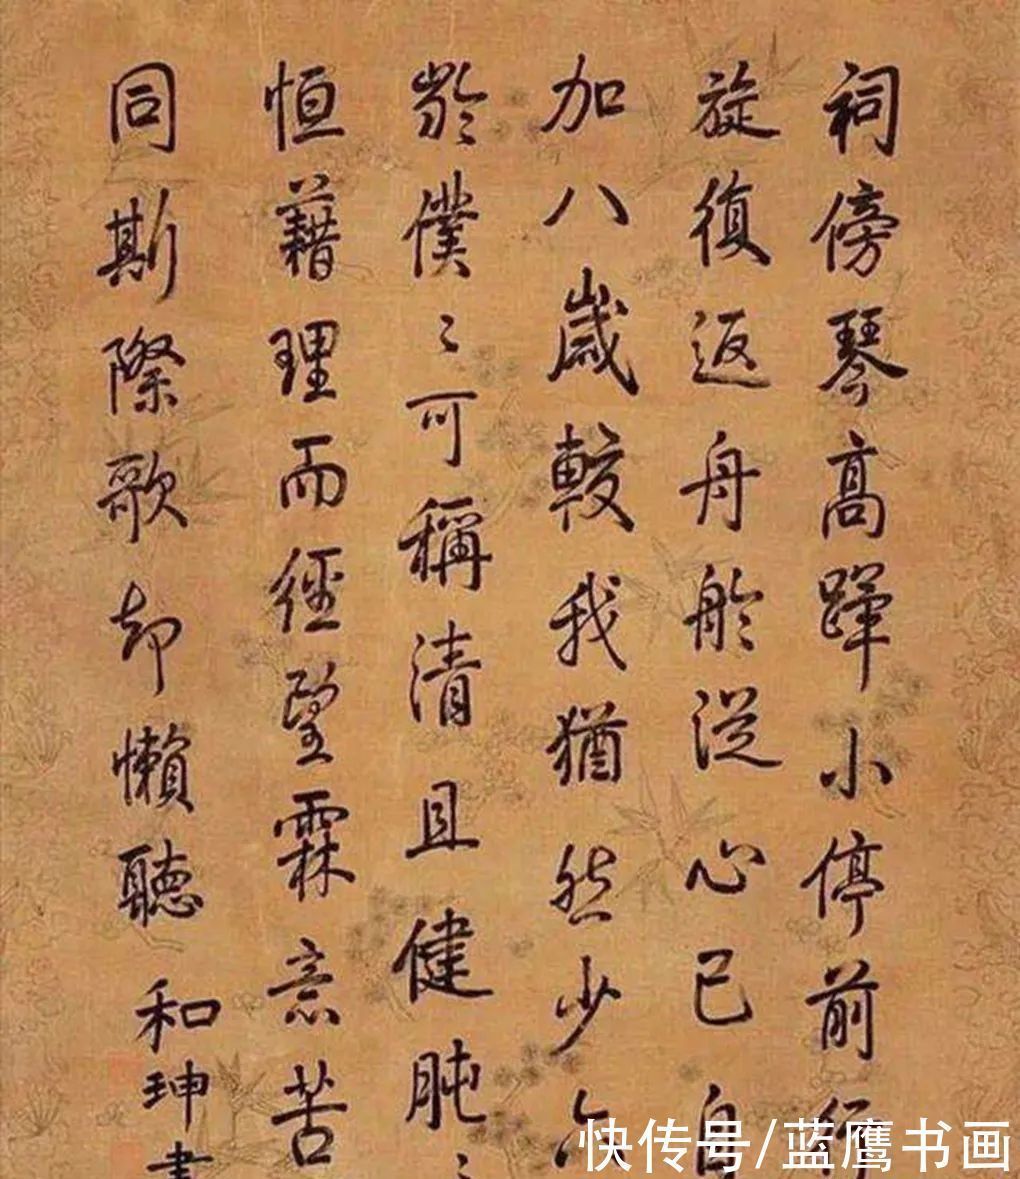 祠傍琴高蹕小停前行
旋復返舟舲從心已自
加八歲較我猶然少六
齡僕〻可稱清且健肫〻
恒藉理而徑望霖意苦
同斯際歌却懶聽
和珅書
快传号/蓝鹰书画